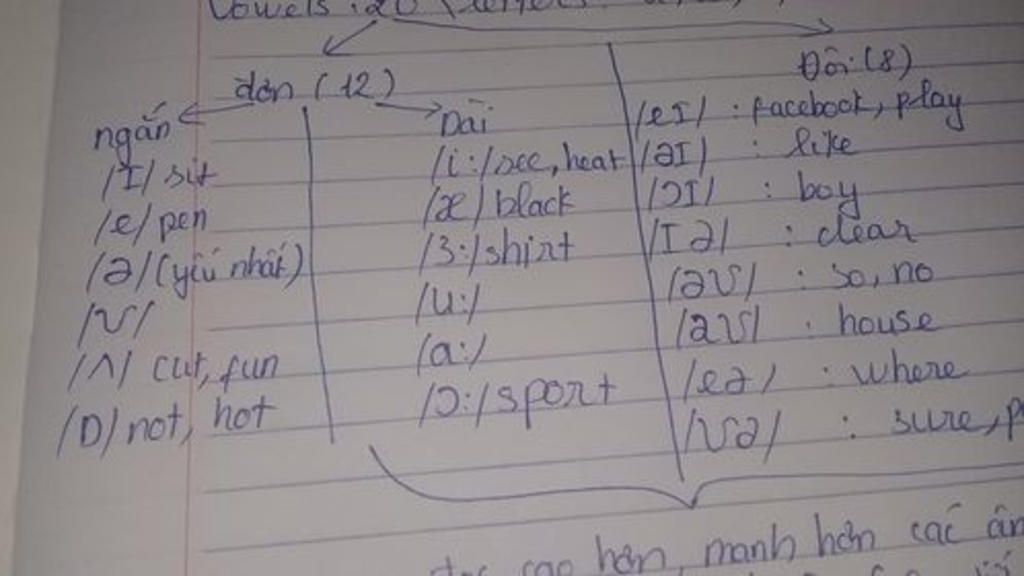 Vowels : 20
đơn (12)
Đôi (8)
ngắn
Dài
/I/ sit
/e/ pen
/ə/ (yếu nhất)
/ʊ/
/ʌ/ cut, fun
/ɒ/ not, hot
/i:/ see, heat
/æ/ black
/ɜ:/ shirt
/u:/
/a:/
/ɔ:/ sport
/eI/ : facebook, play
/aI/ : like
/ɔI/ : boy
/Iə/ : clear
/əʊ/ : so, no
/aʊ/ : house
/eə/ : where
/ʊə/ : sure,
đọc cao hơn, mạnh hơn các âm